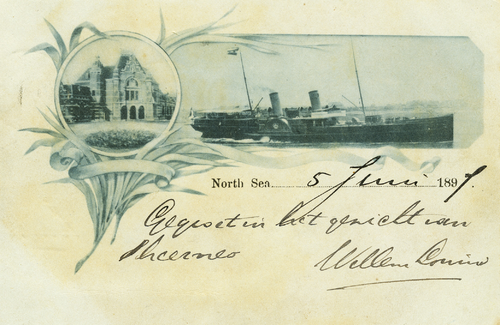 North Sea 5 Juni 1897
Gegroet in het gezicht van
Sheerness
Willem